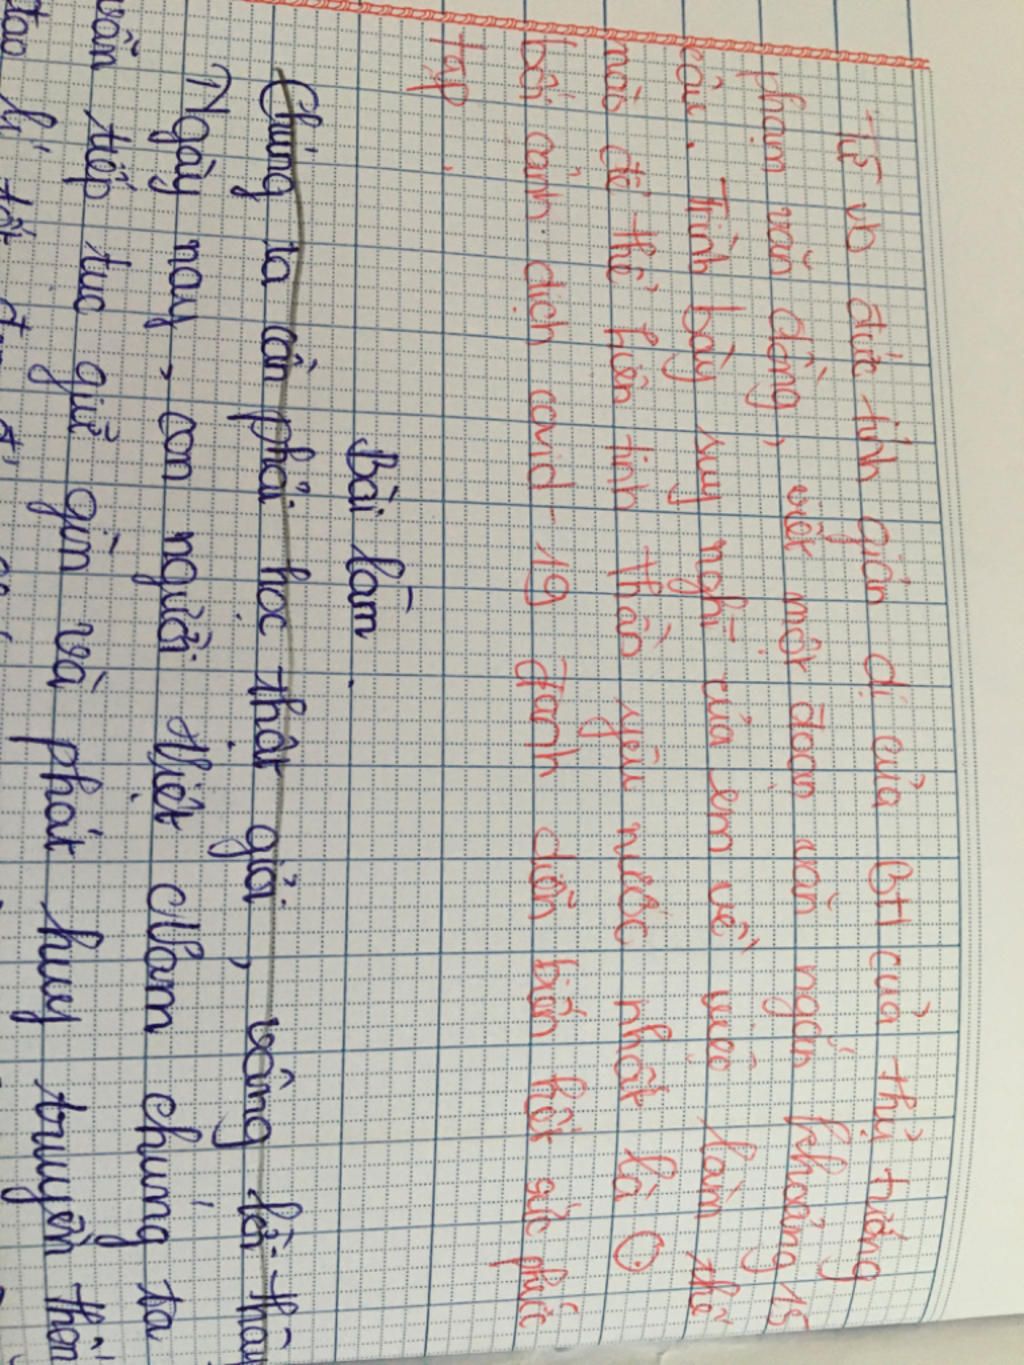 Từ vb đức tính giản dị của BH của thủ tướng
phạm văn đồng, viết một đoạn văn ngắn khoảng 15
câu. Trình bày suy nghĩ của em về việc làm thế
nào để thể hiện tinh thần yêu nước nhất là ở
bối cảnh dịch covid-19 đanh diễn biến hết sức phức
tạp.
Bài làm.
Chúng ta cần phải học thật giỏi, vâng lời
Ngày nay, con người Việt Nam chúng ta
vẫn tiếp tục giữ gìn và phát huy truyền
đạo lí tốt